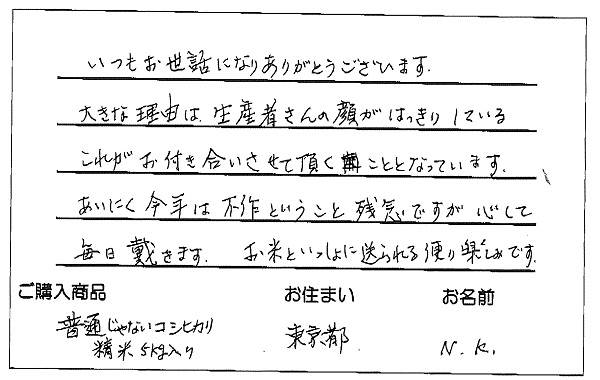 いつもお世話になりありがとうございます.
大きな理由は、生産者さんの顔がはっきりしている
これがお付き合いさせて頂くこととなっています.
あいにく今年は不作ということ残念ですが心して
毎日戴きます. お米といっしょに送られる便り楽しみです.
ご購入商品 お住まい お名前
普通じゃないコシヒカリ 東京都 N.K.
精米5kg入り